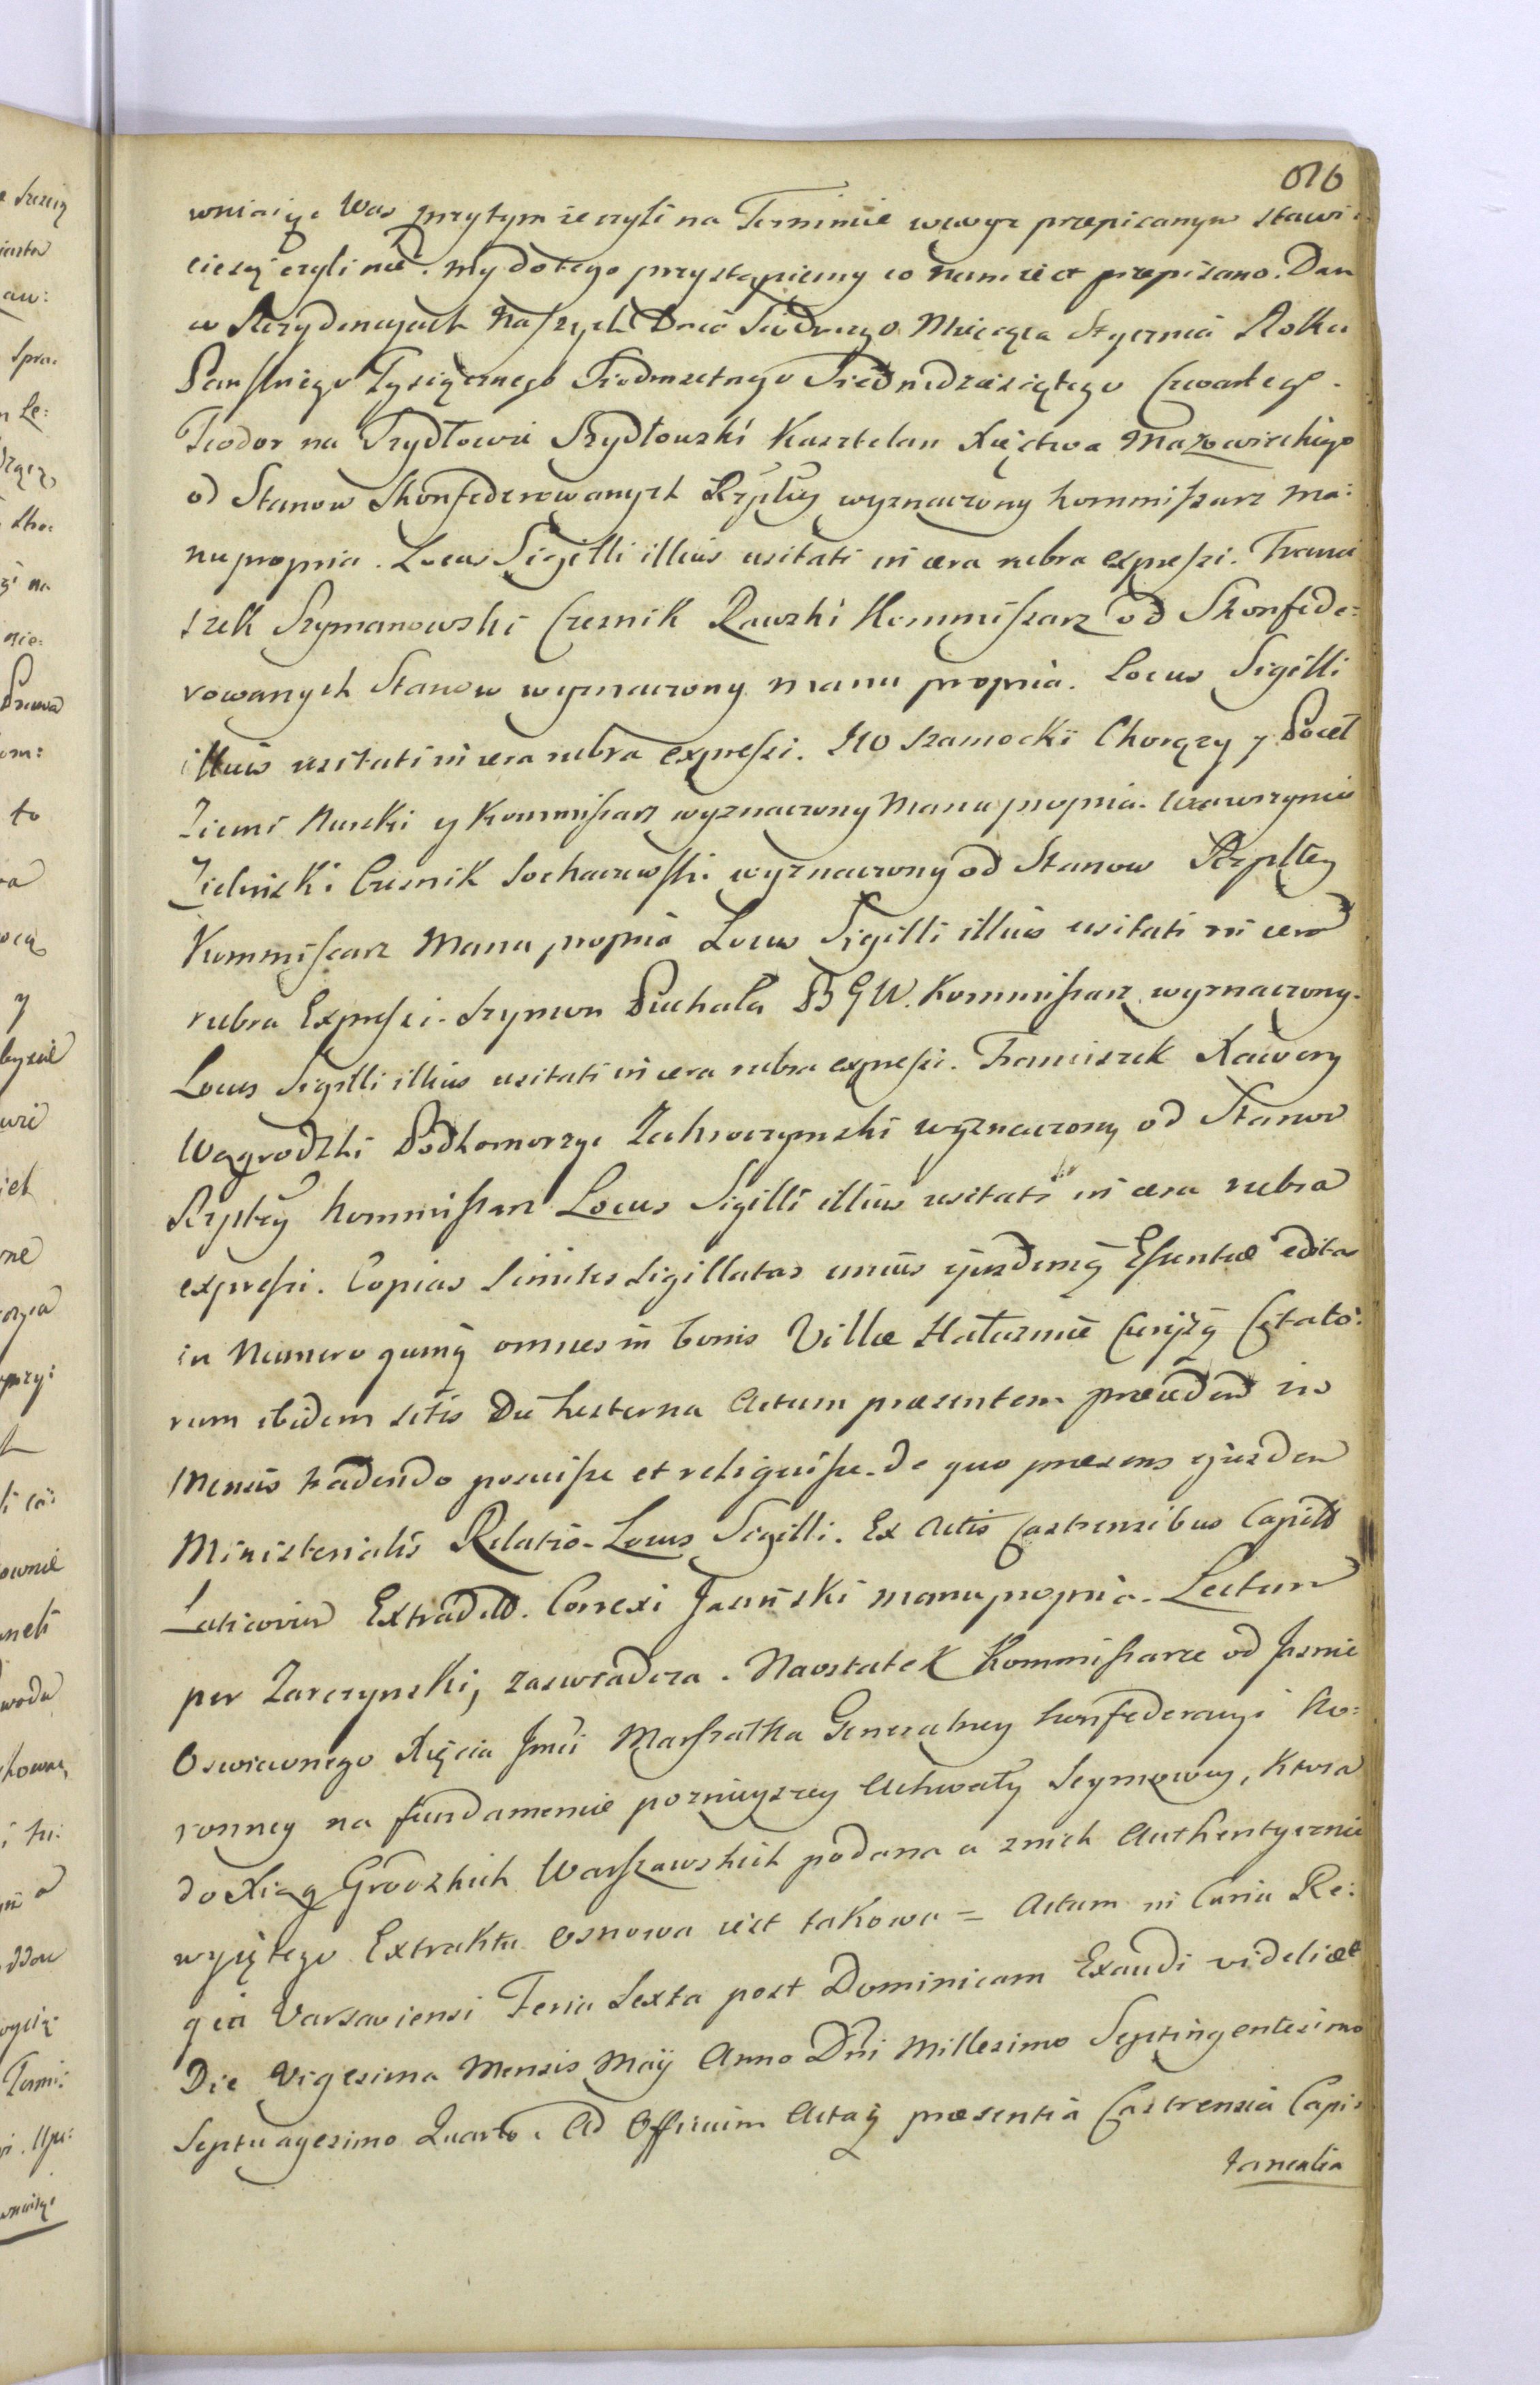 616
wniaiąc Was przytym że czyli na Terminie wzwyz przepisanym stawi:
ciesię czyli nie. my dotego przystąpiemy co nam iest przepisano. Dan
w Rezydencyach Naszych Dnia Siodmego Miesiąca Stycznia Roku
Panskiego Tysiącznego Siedmsetnego Siedmdziesiątego Czwartego.
Teodor na Szydłowie Szydłowski Kasztelan Xięstwa Mazowieckiego
od Stanow Skonfederowanych Rzpltey wyznaczony kommissarz ma:
nu propria. Locus Sigilli illius usitati in cera rubra expressi. Franci
szek Szymanowski Czesnik Rawski Kommissarz od Skonfede:
rowanych Stanow wyznaczony manu propria. Locus Sigilli
illius usitati in cera rubra expressi. Szamocki Chorąży y Poseł
Ziemi Kommissarz wyznaczony Manu propria. Wawrzyniec
Zielinski Czesnik Sochaczewski wyznaczony od Stanow Rzpltey
Kommissarz Manu propria Locus Sigilli illius usitati in cera
rubra Expressi. Szymon Puchała B G W. Kommissarz wyznaczony.
Locus Sigilli illius usitati in cera rubra expressi. Franciszek Xawery
Wagrodzki Podkomorzyc Zakroczymski wyznaczony od Stanow
Rzpltey kommissarz Locus Sigilli illius usitati in cera rubra
expressi. Copias similes sigillatas unius ejusdemq Essentiae editas
in Numero quinq omnes in bonis Villae Curijsq Citato:
rum ibidem sitis Die hesterna Actum praesentem praeceden in
Mensis tradendo posuisse et reliquisse. de quo praesens ejusdem
Ministerialis Relatio. Locus Sigilli. Ex Actis Castrensibus Capitlb
Extradit. Correxi Jasinski manu propria. Lectum
per Zarczynski, zaswiadcza. Naostatek Kommissarze od Jasnie
Oswieconego Xięcia Jmci Marszałka Generalney konfederacyi Ko:
ronney na fundamencie poznieyszey Uchwały Seymowey, ktora
do Xiąg Grodzkich Warszawskich podana a znich Authentycznie
wyjętego Extraktu osnowa iest takowa = Actum in Curia Re:
gia Varsaviensi Feria Sexta post Dominicam Exaudi videlicet
Die Vigesima Mensis Maij Anno Dni Millesimo Septingentesimo
Septuagesimo Quarto. Ad Officium Actaq praesentia Castrensia Capi:
tanealia